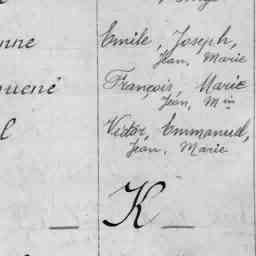 nne Emile, Joseph,
Jean, Marie
ouené François, Marie
Jean, Min
l Victor, Emmanuel,
Jean, Marie
— K —